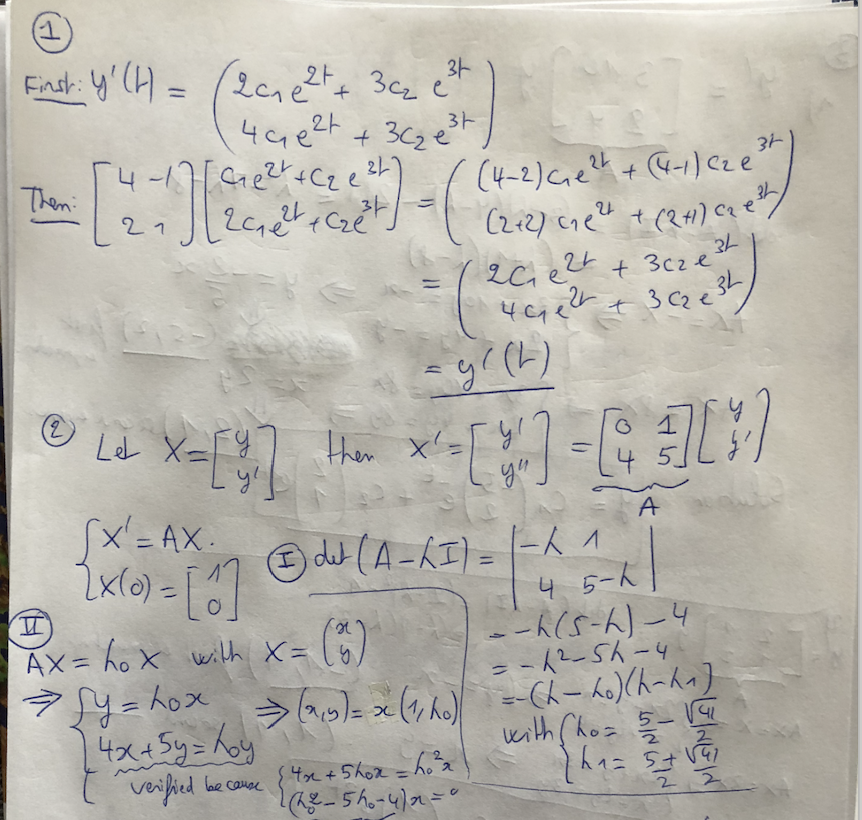 ①
First: y'(t) = ( 2c₁e^{2t} + 3c₂ e^{3t}
4c₁e^{2t} + 3c₂e^{3t} )
Then: [ 4 -1
2 1 ] [ c₁e^{2t} + c₂ e^{3t}
2c₁e^{2t} + c₂e^{3t} ] = ( (4-2)c₁e^{2t} + (4-1)c₂e^{3t}
(2+2) c₁e^{2t} + (2+1) c₂ e^{3t} )
= ( 2c₁ e^{2t} + 3c₂ e^{3t}
4c₁e^{2t} + 3c₂e^{3t} )
= y'(t)
② Let X = [ y
y' ] then X' = [ y'
y'' ] = [ 0 1
4 5 ] [ y
y' ]
A
{ X' = AX.
X(0) = [ 1
0 ]
Ⓘ det(A-λI) = | -λ 1
4 5-λ |
= -λ(5-λ) - 4
= -λ² - 5λ - 4
= -(λ-λ₀)(λ-λ₁)
with { λ₀ = 5/2 - √41/2
λ₁ = 5/2 + √41/2
Ⅱ
AX = λ₀X with X = ( x
y )
⇒ { y = λ₀x
4x+5y = λ₀y
⇒ (x,y) = x(1,λ₀)
verified because { 4x + 5λ₀x = λ₀²x
(λ₀² - 5λ₀ - 4)x = 0